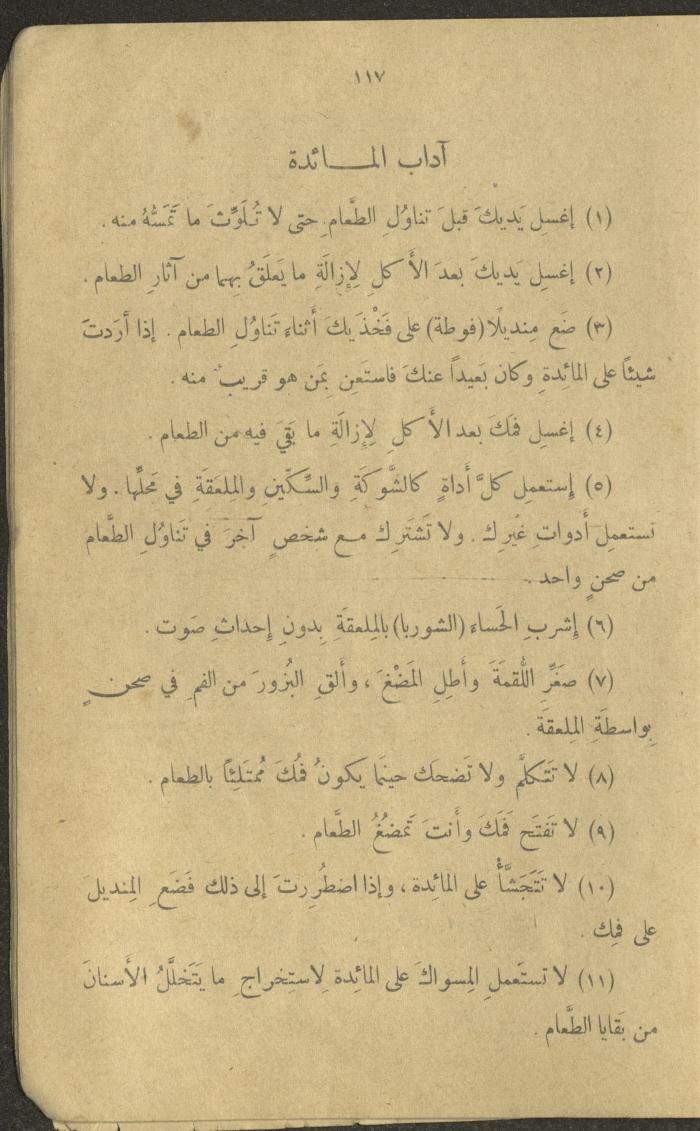 ١١٧
آداب المـــائدة
(١) إغسِل يَديكَ قبلَ تناوُلِ الطَّعام حتى لا تُلَوِّثَ ما تَمَسُّهُ منه .
(٢) إغسِل يَديكَ بعدَ الأَكلِ لِإزالَةِ ما يَعلَقُ بِهما من آثارِ الطعام .
(٣) ضَع مِنديلًا (فوطة) على فَخْذَيكَ أثناء تَناوُلِ الطعام . إذا أرَدتَ
شيئاً على المائِدةِ وكان بَعيداً عنكَ فاستَعنِ بِمَن هو قريبٌ منه .
(٤) إغسِل فمَكَ بعد الأَكلِ لِإزالَةِ ما بَقيَ فيه من الطعام .
(٥) إستعمِل كلَّ أداةٍ كالشَّوكَةِ والسِّكّينِ والمِلعَقَةِ في مَحلِّها . ولا
تستعمِل أدواتِ غَيرِك . ولا تَشتَرِك مـع شخصٍ آخَرَ في تَناوُلِ الطَّعام
من صحنٍ واحد .
(٦) إشربِ الحَساء (الشوربا) بالمِلعقَةِ بِدونِ إحداثِ صَوت .
(٧) صَغِّرِ اللُّقمَةَ وأَطِلِ المَضْغَ ، وأَلقِ البُزورَ من الفمِ في صحنٍ
بِواسطَةِ المِلعقَة .
(٨) لا تَتَكلَّم ولا تَضحَك حينَما يكونُ فمُكَ مُمتَلِئاً بالطعام .
(٩) لا تَفتَح فَمَكَ وأَنتَ تَمضُغُ الطَّعام .
(١٠) لا تَتَجَشَّأْ على المائِدة ، وإذا اضطُرِرتَ إلى ذلك فَضَعِ المِنديلَ
على فمِك .
(١١) لا تستَعملِ المِسواكَ على المائِدة لِاستِخراجِ ما يَتَخلَّلُ الأَسنانَ
من بَقايا الطَّعام .